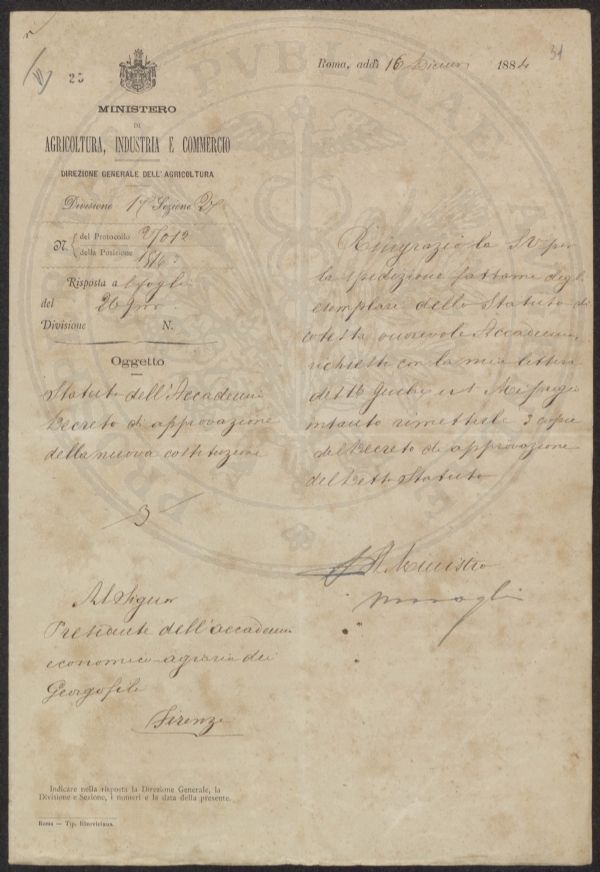 31
Roma, addì 16 1884
25
MINISTERO
DI
AGRICOLTURA, INDUSTRIA E COMMERCIO
DIREZIONE GENERALE DELL'AGRICOLTURA
Divisione 1ª Sezione 2ª
N. del Protocollo
della Posizione
Risposta a foglio
del 26
Divisione N.
Oggetto
Statuto dell'Accademia
Decreto di approvazione
della nuova costituzione
3
Al Signor
Presidente dell'accademia
economico-agraria dei
Georgofili
Firenze
Ringrazio la SV per
la spedizione fattami degli
esemplari dello Statuto di
cotesta onorevole Accademia,
richiesti con la mia lettera
del 16 Mi pregio
intanto rimetterle 3 copie
del Decreto di approvazione
del detto Statuto
Il Ministro
Indicare nella risposta la Direzione Generale, la
Divisione e Sezione, i numeri e la data della presente.
Roma — Tip. Elzeviriana.
PVBLICAE